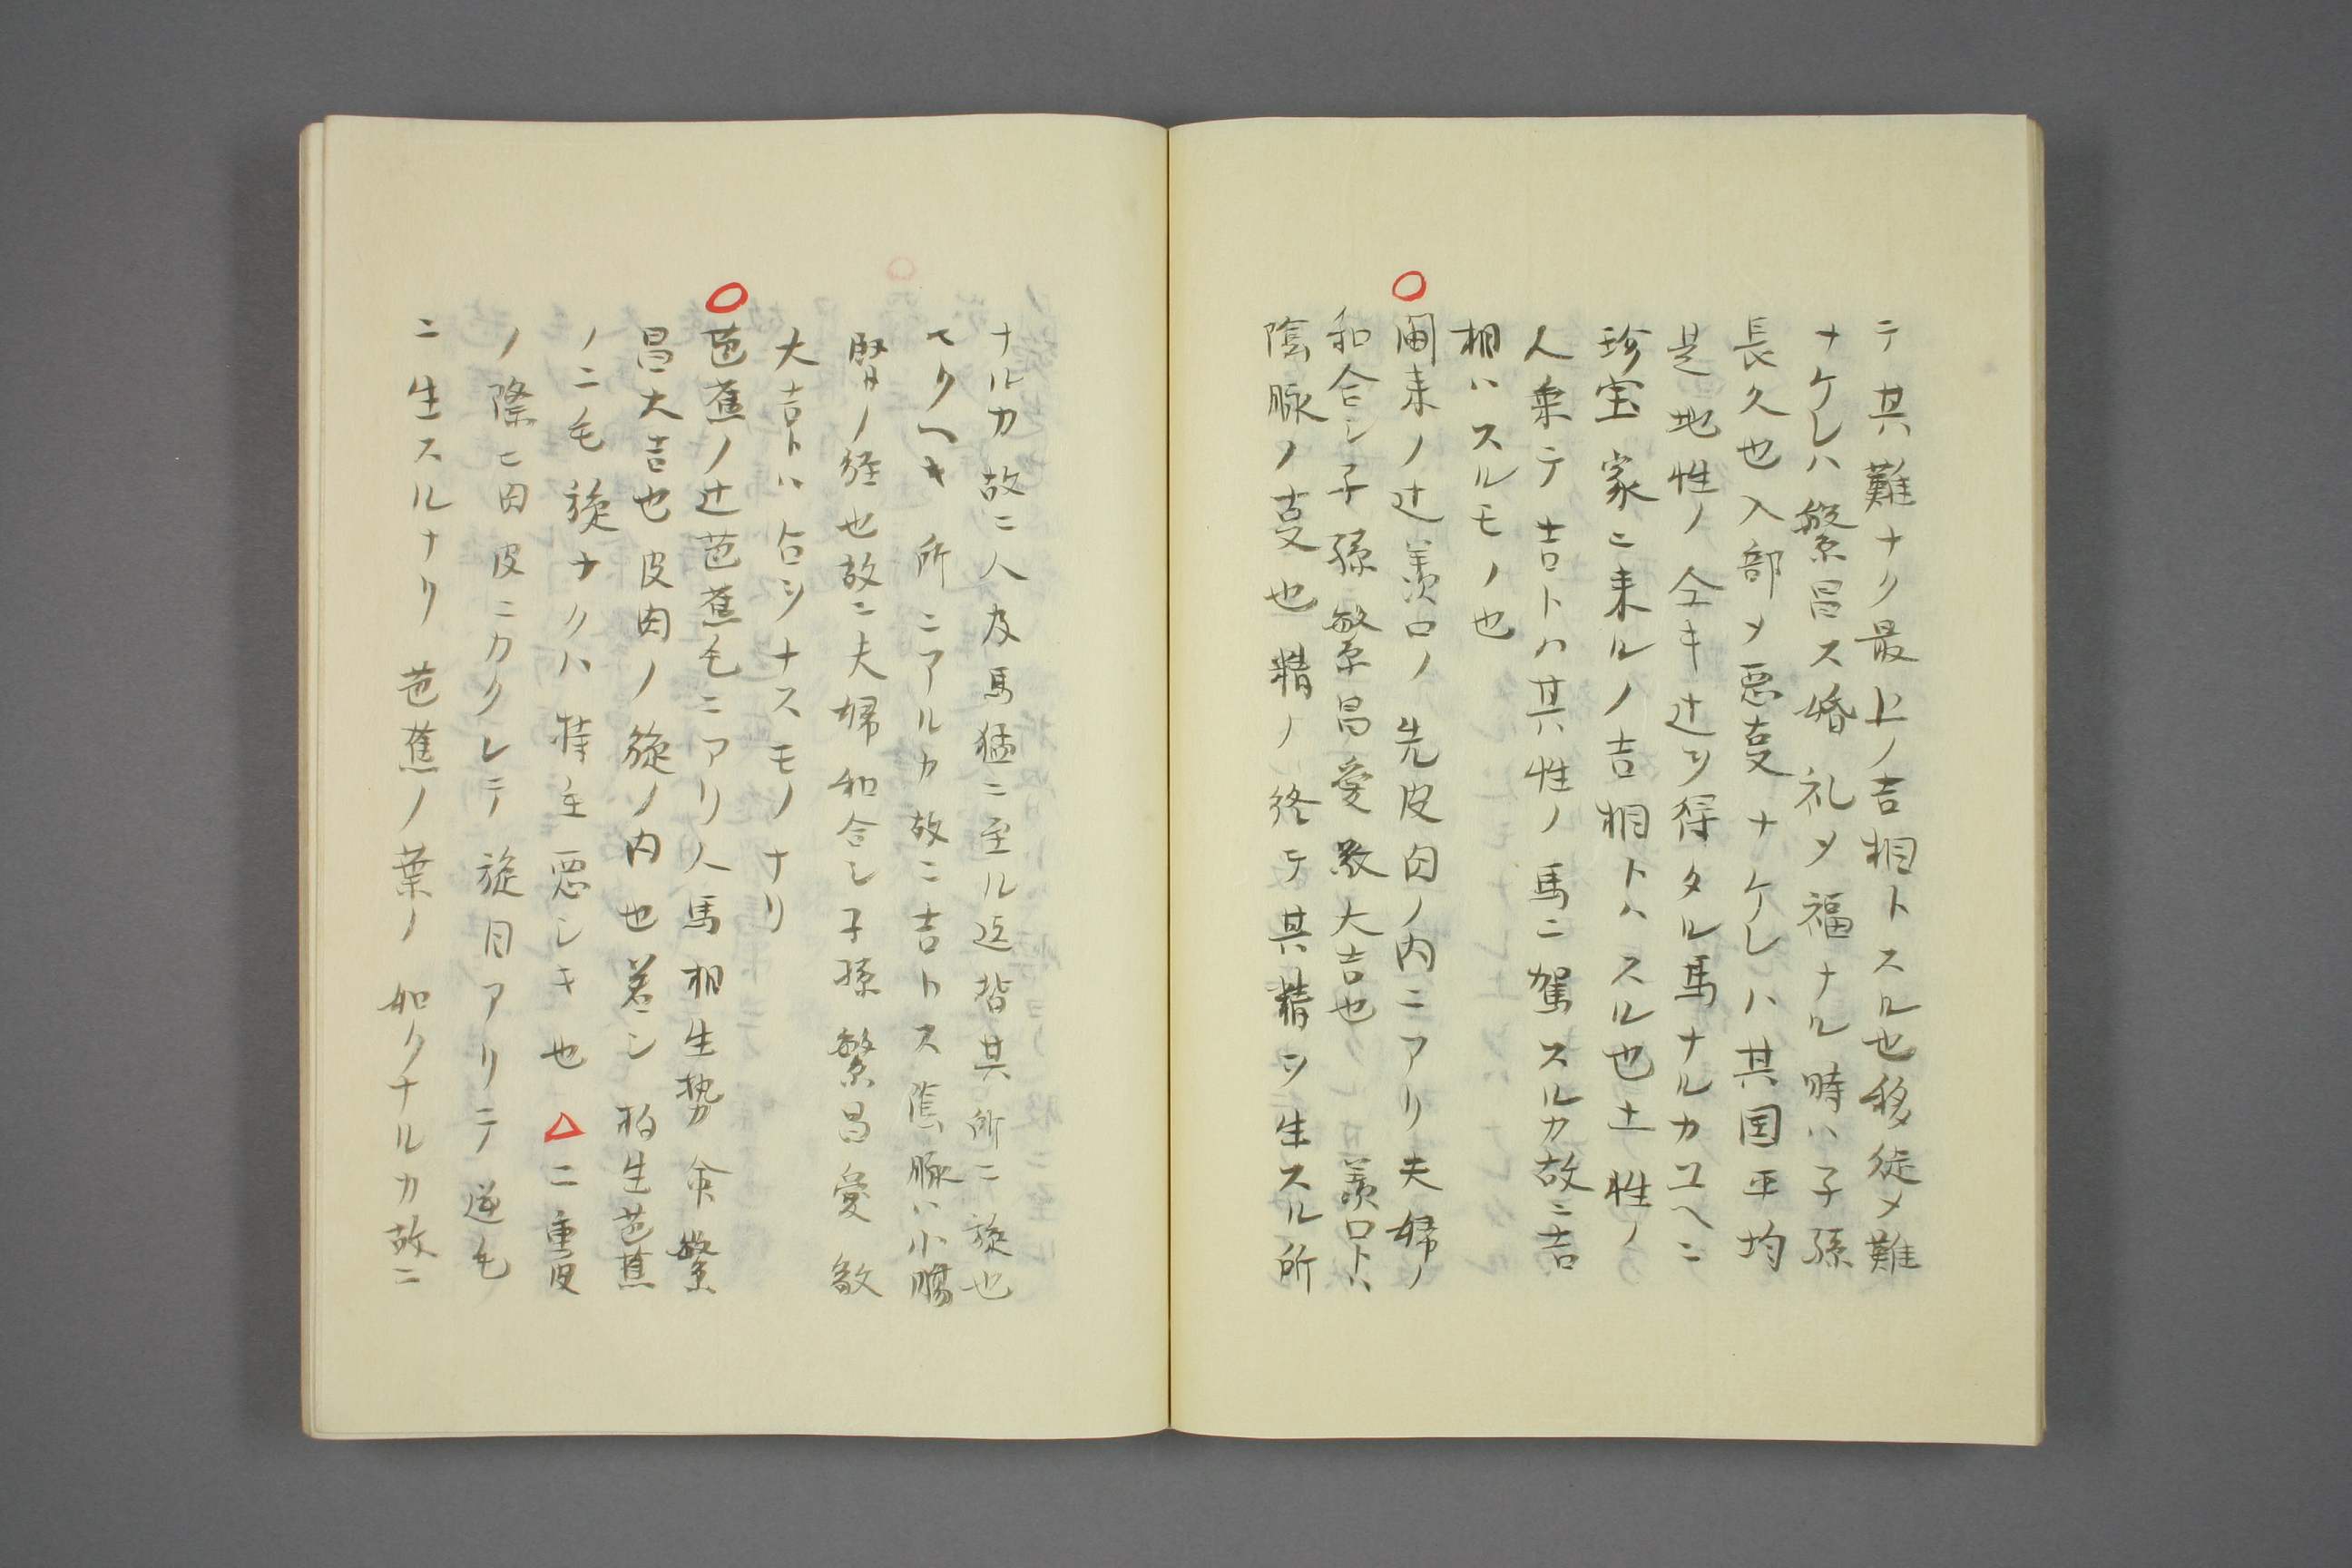 テ其難ナク最上ノ吉相トスル也移徙〆難
ナケレハ繁昌ス婚礼〆福ナル時ハ子孫
長久也入部〆悪叓ナケレハ其国平均
是地性ノ全キ辻ヲ得タル馬ナルカユヘニ
珍宝家ニ来ルノ吉相トハスル也土性ノ
人乗テ吉トハ其性ノ馬ニ駕スルカ故ニ吉
相ハスルモノ也
○開来ノ辻羨口ノ先皮肉ノ内ニアリ夫婦ノ
和合シ子孫繁昌愛敬大吉也 羨口トハ
陰脉ノ叓也精ノ終テ其精ヲ生スル所
ナルカ故ニ人及馬猛ニ至ル迄皆其所ニ旋也
マクヘキ所ニアルカ故ニ吉トス陰脉ハ小腸
腎ノ経也故ニ夫婦和合シ子孫繁昌愛敬
大吉トハ占ヲナスモノナリ
○芭蕉ノ辻芭蕉毛ニアリ人馬相生勢命繁
昌大吉也皮肉ノ旋ノ内也若シ相生芭蕉
ノ二毛旋ナクハ特主悪シキ也△二重皮
ノ際ニ肉皮ニカクレテ旋目アリテ逆毛
ニ生スルナリ芭蕉ノ葉ノ如クナルカ故ニ